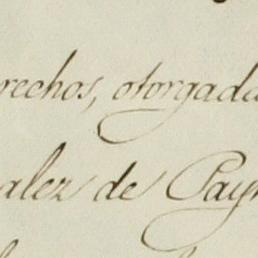 rechos, otorgada
alez de Pay